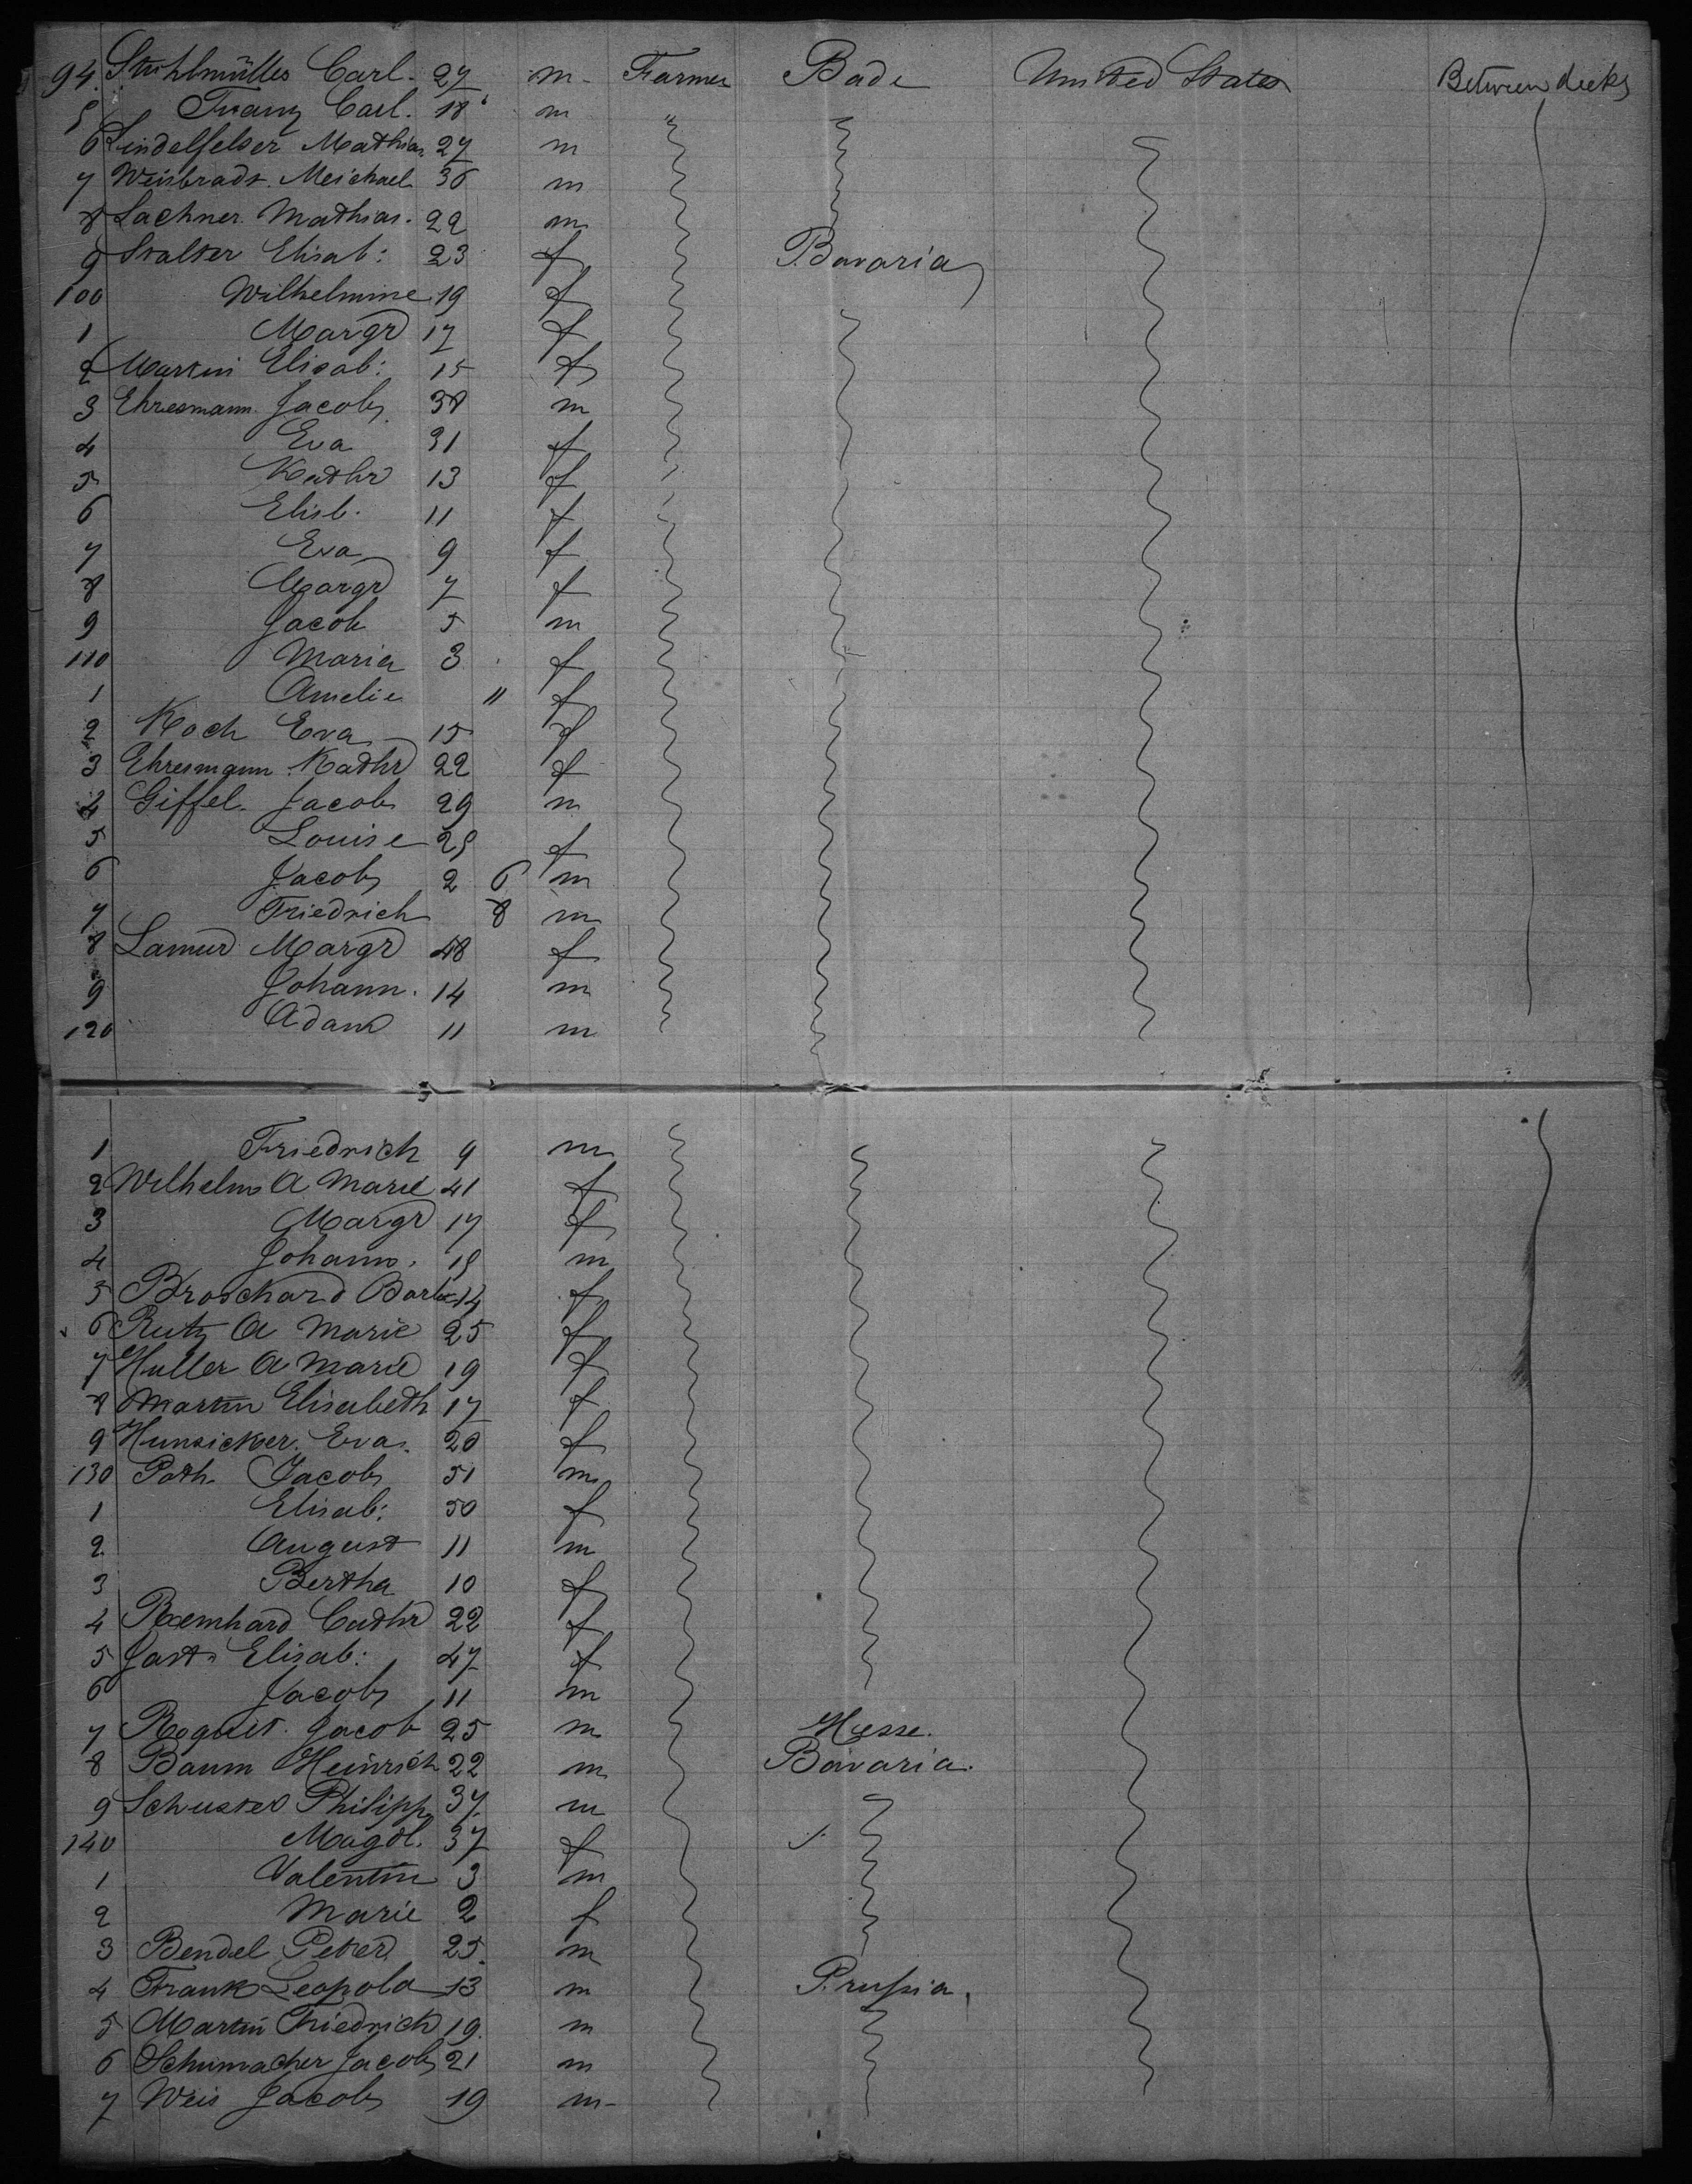 94. Stuhlmüller Carl. 27 m - Farmer Bade United States Between decks
5 Franz Carl. 18 m "
6 Lindelfelser Mathias 27 m
7 Weisbradt. Meichael 36 m
8 Lachner. Mathias. 22 m
9 Stalter Elisab: 23 f Bavaria
100 Wilhelmine 19 f
1 Margr 17 f
2 Martin Elisab: 15 f
3 Ehresmann. Jacob 38 m
4 Eva 31 f
5 Kathr 13 f
6 Elisb. 11 f
7 Eva 9 f
8 Margr 7 f
9 Jacob 5 m
110 Maria 3 f
1 Amelie " f
2 Koch Eva 15 f
3 Ehresmann. Kathr 22 f
4 Giffel. Jacob 29 m
5 Louise 25 f
6 Jacob 2 6 m
7 Friedrich 8 m
8 Lamur Margr 48 f
9 Johann. 14 m
120 Adam 11 m
1 Friedrich 9 m
2 Wilhelm A Marie 41 f
3 Margr 17 f
4 Johann. 15 m
5 Broschard Barb 14 f
6 Rutz A Marie 25 f
7 Huller A Marie 19 f
8 Martin Elisabeth 17 f
9 Hunsicker. Eva. 20 f
130 Poth. Jacob 51 m
1 Elisab: 50 f
2 August 11 m
3 Bertha 10 f
4 Reinhard Cathr 22 f
5 Jast Elisab: 47 f
6 Jacob 11 m
7 Jacob 25 m Hesse.
8 Baum Heinrich 22 m Bavaria.
9 Schuster Philipp 37 m
140 Magdl. 37 f
1 Valentin 3 m
2 Marie 2 f
3 Bendel Peter 25. m
4 Frank Leopold 13 m Prussia.
5 Martin Friedrich 19. m
6 Schumacher Jacob 21 m
7 Weis Jacob 19 m -